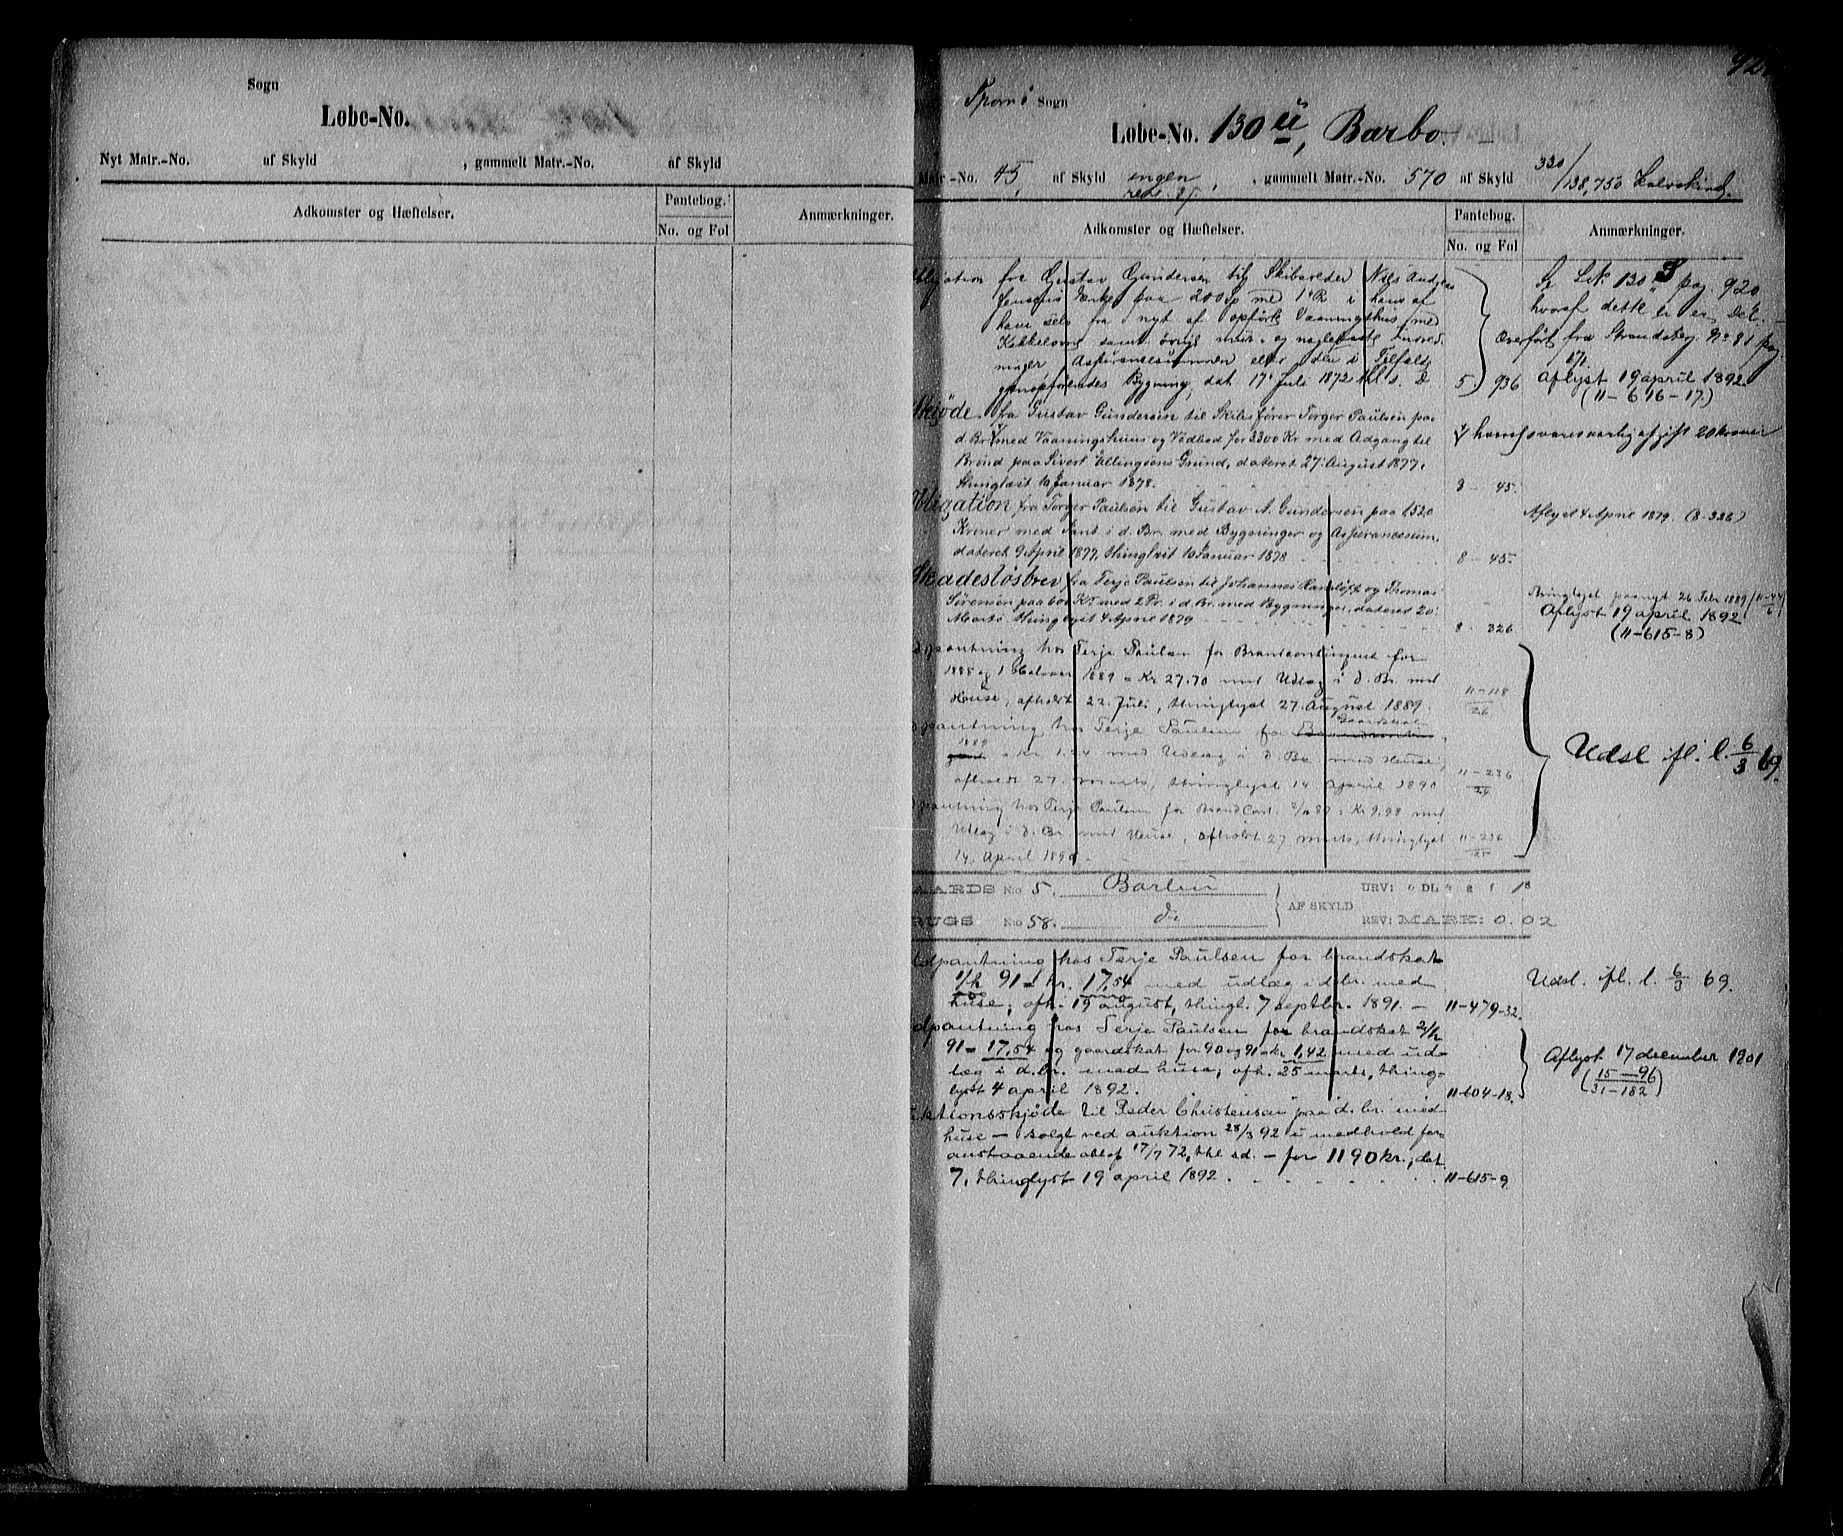 Sogn
Løbe-No.
Nyt Matr.-No. af Skyld , gammelt Matr.-No. af Skyld
Adkomster og Hæftelser.
Pantebog.
No. og Fol
Anmærkninger.
Tromø Sogn
Løbe-No. 130 ü, Barbo.
Matr.-No. 45, af Skyld ingen , gammelt Matr.-No. 570 af Skyld 330/138,750
Adkomster og Hæftelser.
Pantebog.
No. og Fol
Anmærkninger.
Obligation fra Gustav Gundersen til Skibsreder Niels
Enke paa 200 Sp med 1 Pr. i hans af
fra nyt af opførte Vaaningshus med
Kakkelovne samt øvrige mur- og naglefaste
Assurancesummen eller den i Tilfælde
Bygning, dat. 17 Juli 1872 thl. s. D 5. 936
Se L.N. 130 S pag. 920
hvoraf dette er en Del.
Overført fra Strandsbog. No 81 pag
Aflyst 19 april 1892
(11-616-17.)
Skjøde fra Gustav Gundersen til Skibsfører Torger Paulsen paa
d. Br. med Vaaningshuus og Vedbod for 3300 Kr. med Adgang til
Brønd paa Sivert Ellingsens Grund, dateret 27 August 1877,
thinglæst 10 Januar 1878. 8 - 45.
hvoraf svares aarlig afgift 20 kroner
Obligation fra Torger Paulsen til Gustav A. Gundersen paa 1520
Kroner med Pant i d. Br. med Bygninger og Assurancesum,
dateret 9 April 1877, thinglæst 10 Januar 1878 8 - 45.
Aflyst 4 April 1879. (8-326)
Skadesløsbrev fra Terje Paulsen til Johannes og Thomas
Sørensen paa 600 Kr med 2 Pr. i d. Br. med Bygninger, dateret 20
Marts, thinglyst 4 April 1879 8 - 326
thinglyst paanyt 26 Febr 1889 (11-44/6)
Aflyst 19 april 1892
(11-615-8)
Udpantning hos Terje Paulsen for Brandcontingent for
1888 og 1 Halvaar 1889 = Kr 27.70 med Udlæg i d. Br. med
House, afholdt 22. Juli, thinglyst 27. August 1889. 11-118/26
Udpantning hos Terje Paulsen for Gaardskat
1889 = Kr 1.44 med Udlæg i d. Br. med House,
afholdt 27. marts, thinglyst 14 April 1890 11-236/24
Udpantning hos Terje Paulsen for Brand Cont. 2/h 89 = Kr 9.98 med
Udlæg i d. Br. med House, afholdt 27 marts, thinglyst 11-236/25
14. April 1890.
Udsl ifl. l. 6/3 69.
GAARDS No 5. Barbu
BRUGS No 58. do
AF SKYLD
URV: 0 DL 4 2 1 18
REV: MARK: 0.02
Udpantning hos Terje Paulsen for brandskat
1/h 91 = kr. 17,54 med udlæg i d. br. med
huse, afh. 19 august, thingl. 7 septbr. 1891. - 11-479-32.
Udsl. ifl. l. 6/3 69.
Udpantning hos Terje Paulsen for brandskat 2/h
91 = 17,54 og gaardskat for 90 og 91 = kr 1,42 med ud-
læg i d. br. med huse, afh. 25 marts, thing-
lyst 4 april 1892. 11-604-18.
Aflyst 17 december 1901
(15-96
31-182)
Auktionsskjøde til Peder Christensen paa d. br. med
huse - solgt ved auktion 28/3 92 i medhold for-
anstaaende oblig. 17/7 72, thl. s.d. - for 1190 kr., dat.
7, thinglyst 19 april 1892. 11-615-9.